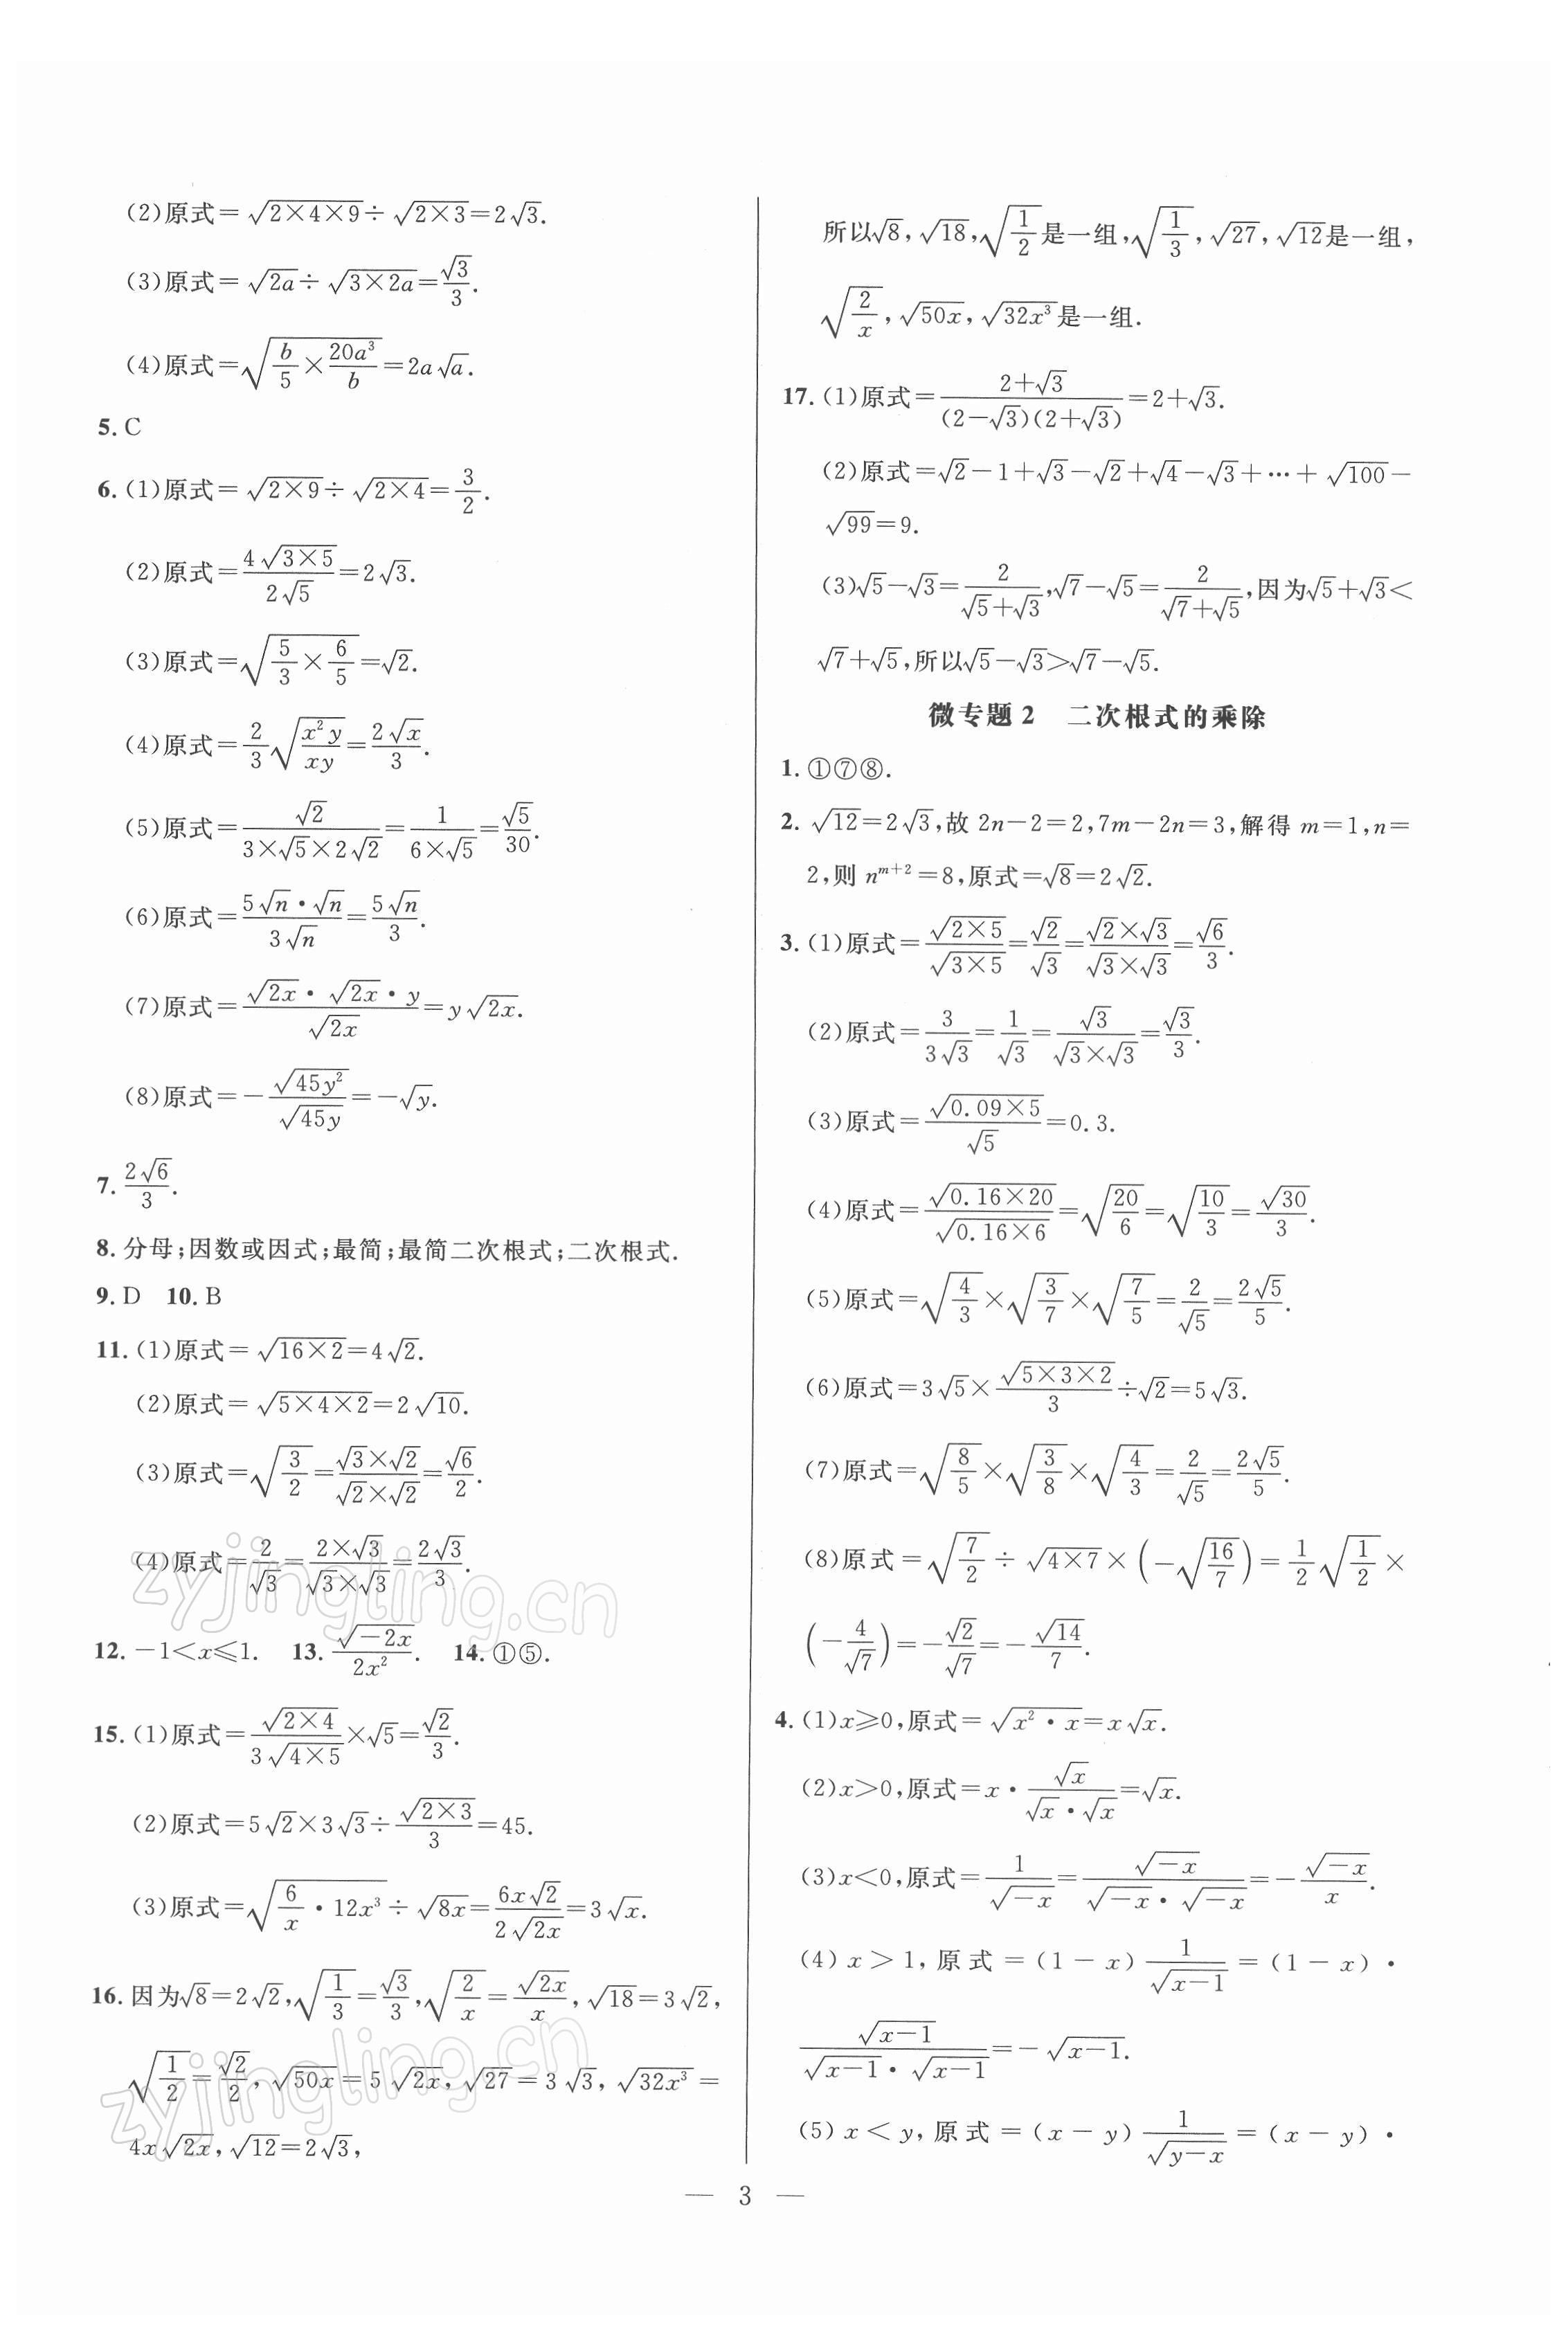 (2)原式=√(2×4×9)÷√(2×3)=2√3.
(3)原式=√(2a)÷√(3×2a)=√3/3.
(4)原式=√(b/5×20a³/b)=2a√a.
5. C
6. (1)原式=√(2×9)÷√(2×4)=3/2.
(2)原式=4√(3×5)/(2√5)=2√3.
(3)原式=√(5/3×6/5)=√2.
(4)原式=2/3√(x²y/xy)=2√x/3.
(5)原式=√2/(3×√5×2√2)=1/(6×√5)=√5/30.
(6)原式=5√n·√n/(3√n)=5√n/3.
(7)原式=√(2x)·√(2x)·y/√(2x)=y√(2x).
(8)原式=-√(45y²)/√(45y)=-√y.
7. 2√6/3.
8. 分母;因数或因式;最简;最简二次根式;二次根式.
9. D 10. B
11. (1)原式=√(16×2)=4√2.
(2)原式=√(5×4×2)=2√10.
(3)原式=√(3/2)=(√3×√2)/(√2×√2)=√6/2.
(4)原式=2/√3=(2×√3)/(√3×√3)=2√3/3.
12. -1<x≤1. 13. √(-2x)/(2x²). 14. ①⑤.
15. (1)原式=√(2×4)/(3√(4×5))×√5=√2/3.
(2)原式=5√2×3√3÷√(2×3)/3=45.
(3)原式=√(6/x·12x³)÷√(8x)=6x√2/(2√(2x))=3√x.
16. 因为√8=2√2,√(1/3)=√3/3,√(2/x)=√(2x)/x,√18=3√2,
√(1/2)=√2/2,√(50x)=5√(2x),√27=3√3,√(32x³)=
4x√(2x),√12=2√3,
所以√8,√18,√(1/2)是一组,√(1/3),√27,√12是一组,
√(2/x),√(50x),√(32x³)是一组.
17. (1)原式=(2+√3)/((2-√3)(2+√3))=2+√3.
(2)原式=√2-1+√3-√2+√4-√3+…+√100-
√99=9.
(3)√5-√3=2/(√5+√3),√7-√5=2/(√7+√5),因为√5+√3<
√7+√5,所以√5-√3>√7-√5.
微专题2 二次根式的乘除
1. ①⑦⑧.
2. √12=2√3,故 2n-2=2,7m-2n=3,解得 m=1,n=
2,则 n^(m+2)=8,原式=√8=2√2.
3. (1)原式=√(2×5)/√(3×5)=√2/√3=(√2×√3)/(√3×√3)=√6/3.
(2)原式=3/(3√3)=1/√3=√3/(√3×√3)=√3/3.
(3)原式=√(0.09×5)/√5=0.3.
(4)原式=√(0.16×20)/√(0.16×6)=√(20/6)=√(10/3)=√30/3.
(5)原式=√(4/3)×√(3/7)×√(7/5)=2/√5=2√5/5.
(6)原式=3√5×√(5×3×2)/3÷√2=5√3.
(7)原式=√(8/5)×√(3/8)×√(4/3)=2/√5=2√5/5.
(8)原式=√(7/2)÷√(4×7)×(-√(16/7))=1/2√(1/2)×
(-4/√7)=-√2/√7=-√14/7.
4. (1)x≥0,原式=√(x²·x)=x√x.
(2)x>0,原式=x·√x/(√x·√x)=√x.
(3)x<0,原式=1/√(-x)=√(-x)/(√(-x)·√(-x))=-√(-x)/x.
(4)x>1,原式=(1-x)1/√(x-1)=(1-x)·
√(x-1)/(√(x-1)·√(x-1))=-√(x-1).
(5)x<y,原式=(x-y)1/√(y-x)=(x-y)·
— 3 —
zyjingling.cn
zyjingling.cn